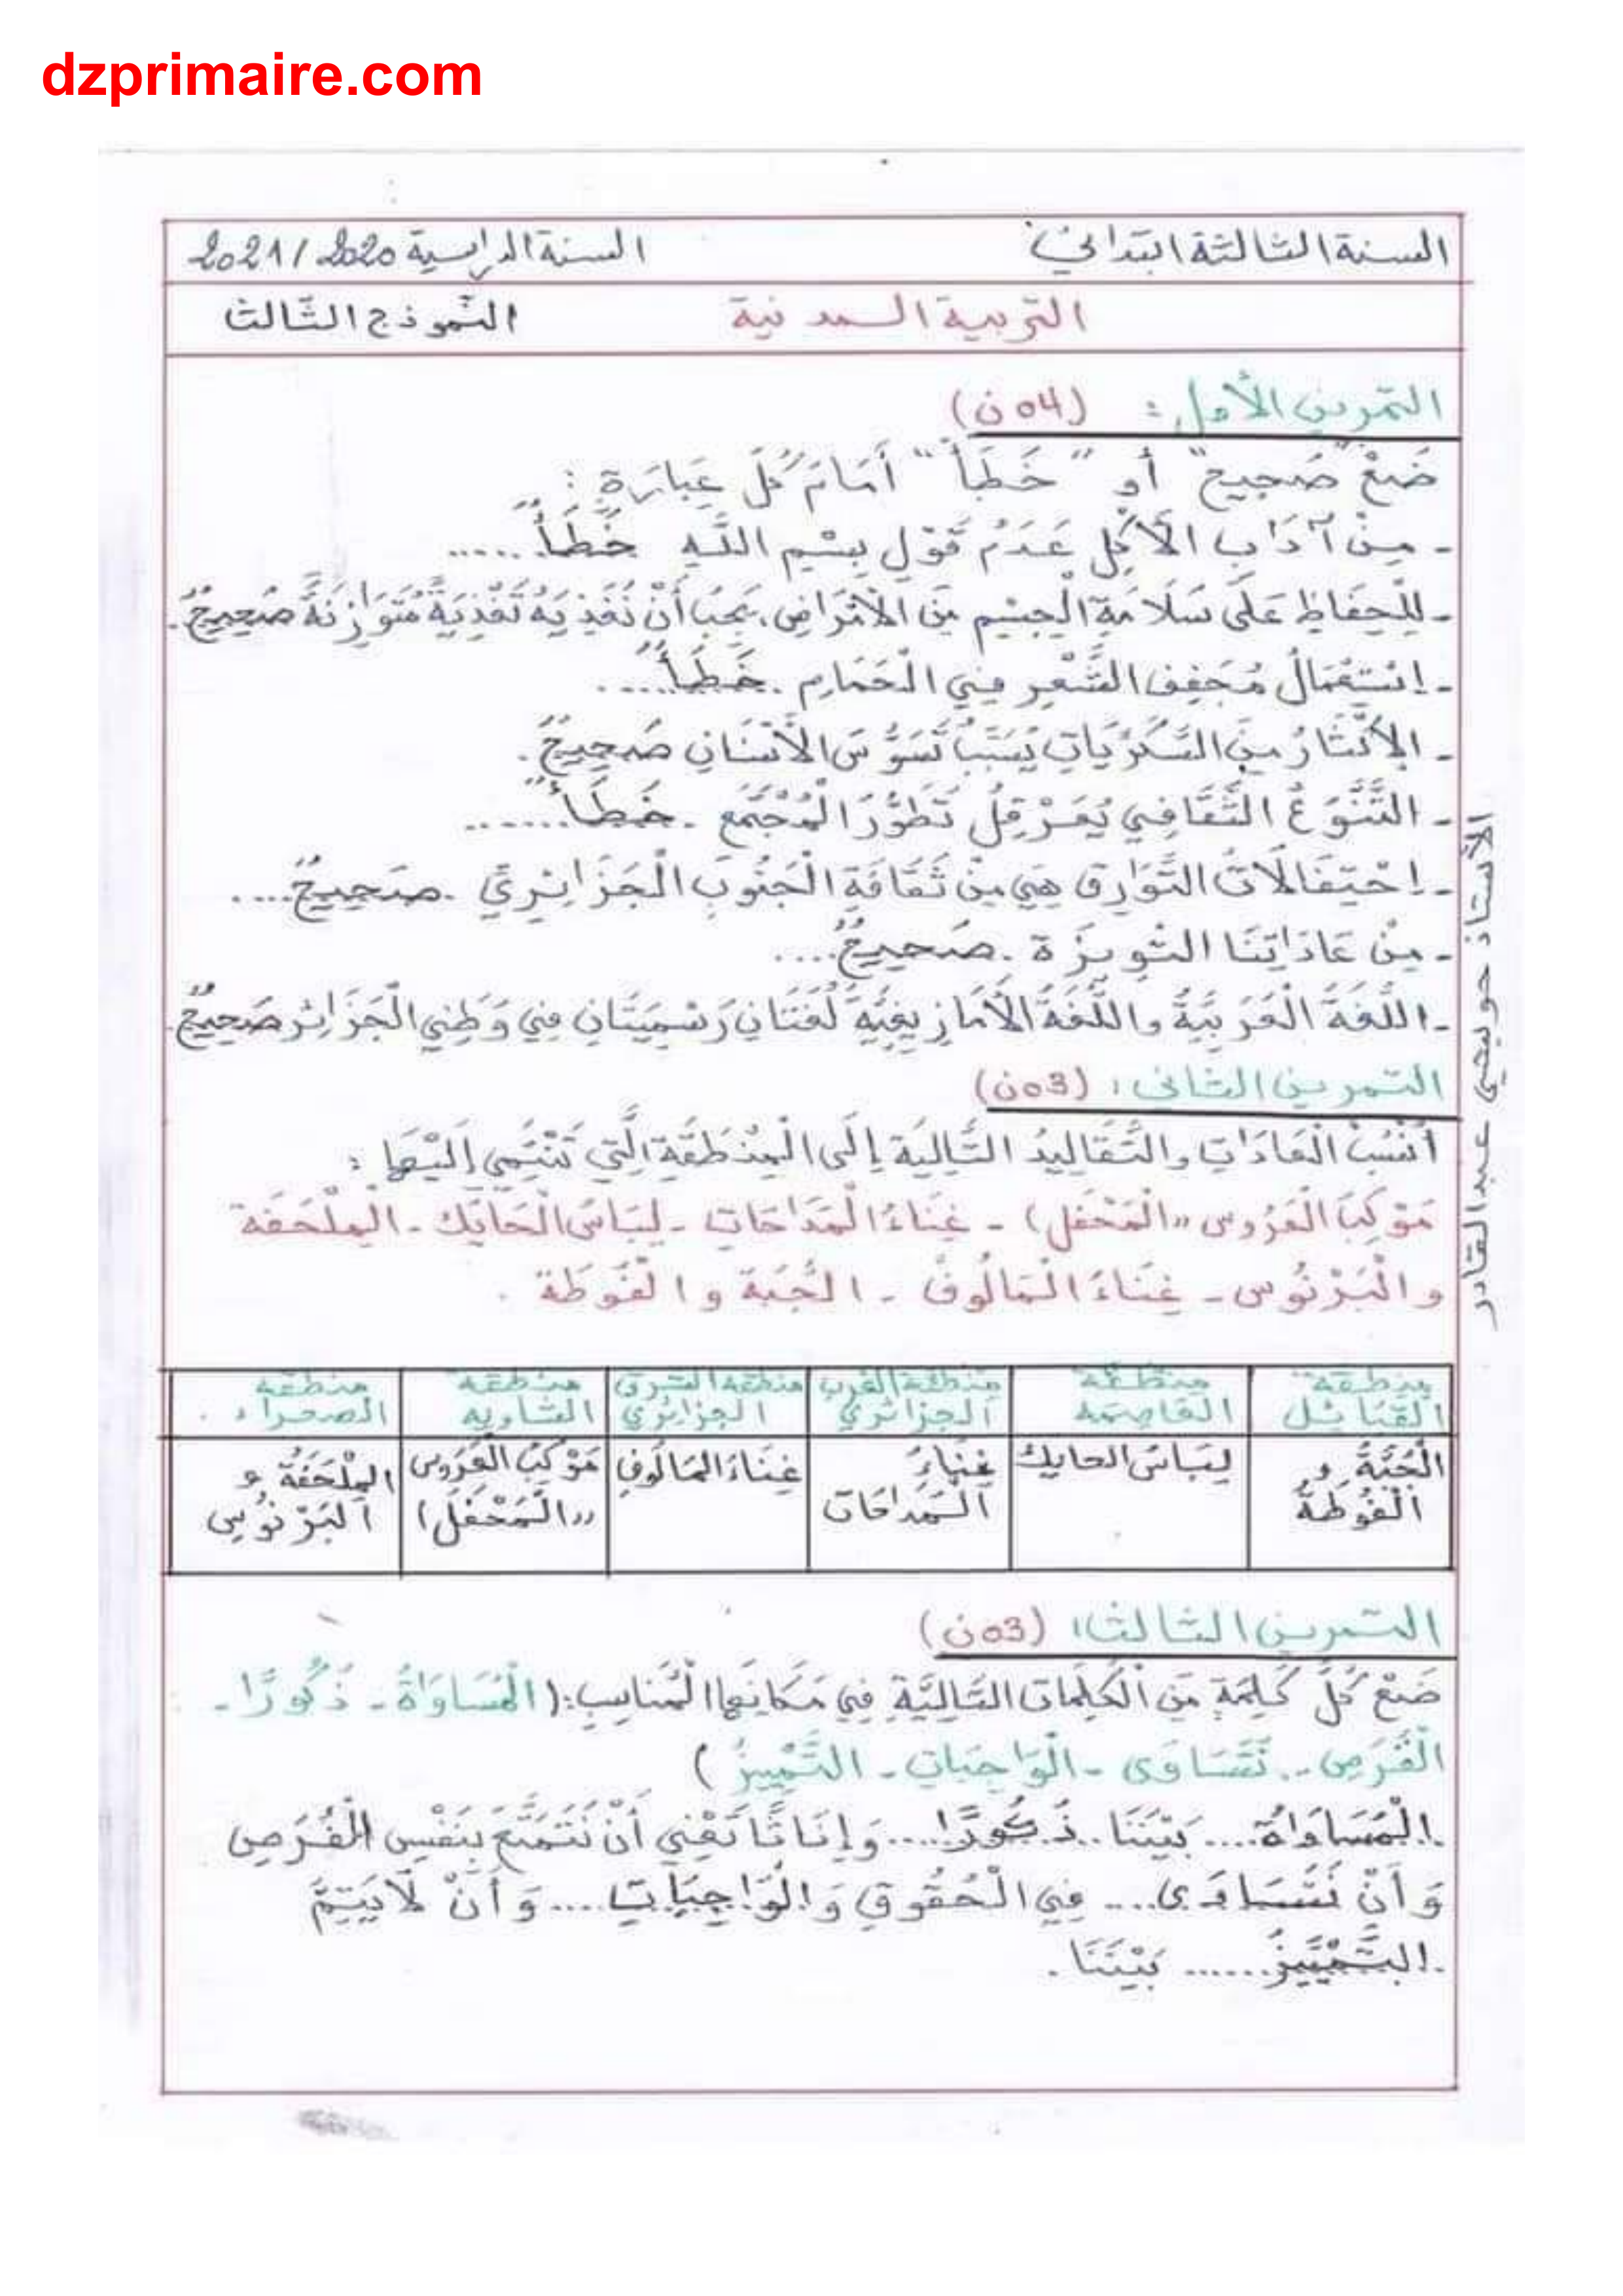 dzprimaire.com
السنة الثالثة ابتدائي السنة الدراسية 2020/2021
التربية المدنية النموذج الثالث
التمرين الأول: (04 ن)
ضَعْ "صَحِيح" أو "خَطَأ" أَمَامَ كُلِّ عِبَارَةٍ:
- مِنْ آدَابِ الأَكْلِ عَدَمُ قَوْلِ بِسْمِ اللَّهِ خَطَأٌ......
- لِلْحِفَاظِ عَلَى سَلَامَةِ الْجِسْمِ مِنَ الأَمْرَاضِ، يَجِبُ أَنْ نُغَذِّيَهُ تَغْذِيَةً مُتَوَازِنَةً صَحِيحٌ.
- اِسْتِعْمَالُ مُجَفِفِ الشَّعْرِ فِي الْحَمَّامِ. خَطَأٌ.....
- الإِكْثَارُ مِنَ السُّكَّرِيَّاتِ يُسَبِّبُ تَسَوُّسَ الأَسْنَانِ صَحِيحٌ.
- التَّنَوُّعُ الثَّقَافِي يُعَرْقِلُ تَطَوُّرَ الْمُجْتَمَعِ. خَطَأٌ.......
- اِحْتِفَالَاتُ التَّوَارِقِ هِيَ مِنْ ثَقَافَةِ الْجَنُوبِ الْجَزَائِرِيِّ. صَحِيحٌ....
- مِنْ عَادَاتِنَا التْوِيزَة. صَحِيحٌ....
- اللُّغَةُ الْعَرَبِيَّةُ واللُّغَةُ الأَمَازِيغِيَّةُ لُغَتَانِ رَسْمِيَتَانِ فِي وَطَنِي الْجَزَائِر صَحِيحٌ
التمرين الثاني: (03ن)
أَنْسُبْ الْعَادَاتِ والتَّقَالِيدُ التَّالِيَة إِلَى الْمِنْطَقَةِ الَّتِي تَنْتَمِي إِلَيْهَا:
مَوْكِبُ الْعَرُوسِ «الْمَحْفَل) - غِنَاءُ الْمَدَاحَاتِ - لِبَاسُ الْحَايَك - الْمِلْحَفَة
والْبَرْنُوس - غِنَاءُ الْمَالُوف - الجُبَة و الْفُوطَة.
منطقة القبائل | منطقة العاصمة | منطقة الغرب الجزائري | منطقة الشرق الجزائري | منطقة الشاوية | منطقة الصحراء
الْجُبَّةُ و الْفُوطَةُ | لِبَاسُ الحايك | غِنَاءُ الْمَدَاحَات | غِنَاءُ المَالُوفِ | مَوْكِبُ الْعَرُوس «الْمَحْفَل) | الْمِلْحَفَةُ و الْبَرْنُوس
التمرين الثالث: (03ن)
ضَعْ كُلَّ كَلِمَةٍ مِنَ الْكَلِمَاتِ التَّالِيَّةِ فِي مَكَانِهَا الْمُنَاسِبِ: (الْمُسَاوَاةُ - ذُكُورًا -
الْفُرَصِ - نَتَسَاوَى - الْوَاجِبَاتِ - التَّمْيِيزُ)
الْمُسَاوَاةُ.... بَيْنَنَا.. ذُكُورًا.... وَإِنَاثًا تَعْنِي أَنْ نَتَمَتَّعَ بِنَفْسِ الْفُرَصِ
وَأَنْ نَتَسَاوَى.... فِي الْحُقُوقِ وَالْوَاجِبَاتِ.... وَأَنْ لَا يَتِمَّ
التَّمْيِيزُ...... بَيْنَنَا.
الأستاذ حويحي عبد القادر